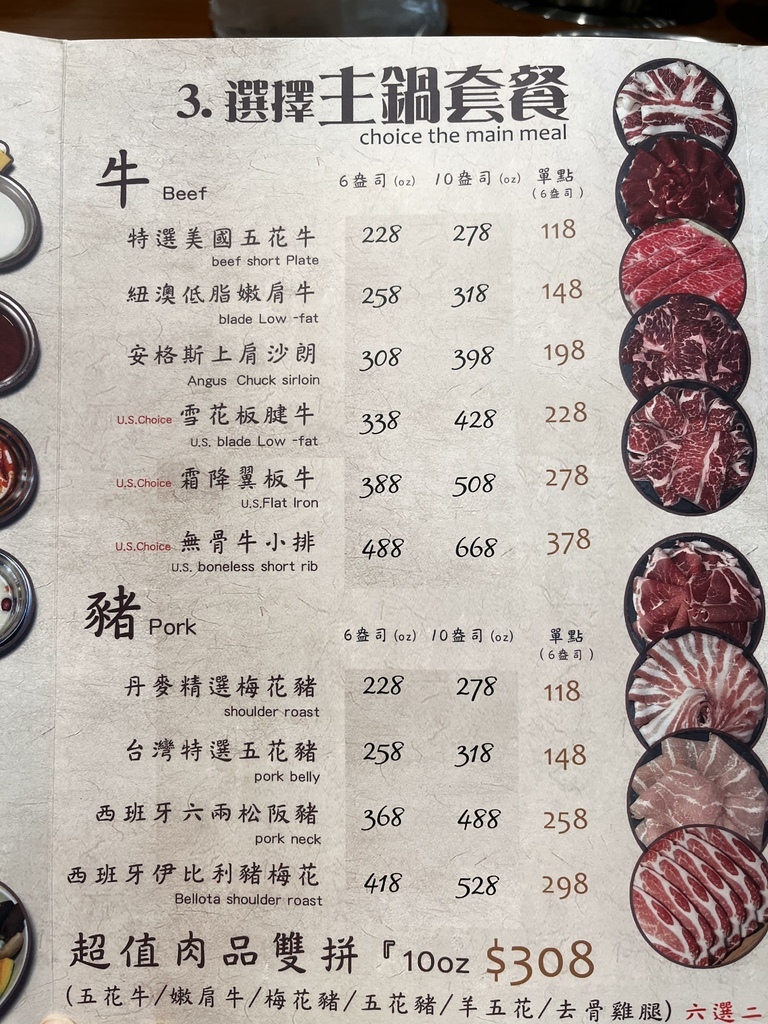 3. 選擇主鍋套餐
choice the main meal
牛 Beef 6盎司(oz) 10盎司(oz) 單點
(6盎司)
特選美國五花牛 228 278 118
beef short Plate
紐澳低脂嫩肩牛 258 318 148
blade Low -fat
安格斯上肩沙朗 308 398 198
Angus Chuck sirloin
U.S.Choice 雪花板腱牛 338 428 228
U.S. blade Low -fat
U.S.Choice 霜降翼板牛 388 508 278
U.S.Flat Iron
U.S.Choice 無骨牛小排 488 668 378
U.S. boneless short rib
豬 Pork 6盎司(oz) 10盎司(oz) 單點
(6盎司)
丹麥精選梅花豬 228 278 118
shoulder roast
台灣特選五花豬 258 318 148
pork belly
西班牙六兩松阪豬 368 488 258
pork neck
西班牙伊比利豬梅花 418 528 298
Bellota shoulder roast
超值肉品雙拼『10oz $308
(五花牛/嫩肩牛/梅花豬/五花豬/羊五花/去骨雞腿) 六選二